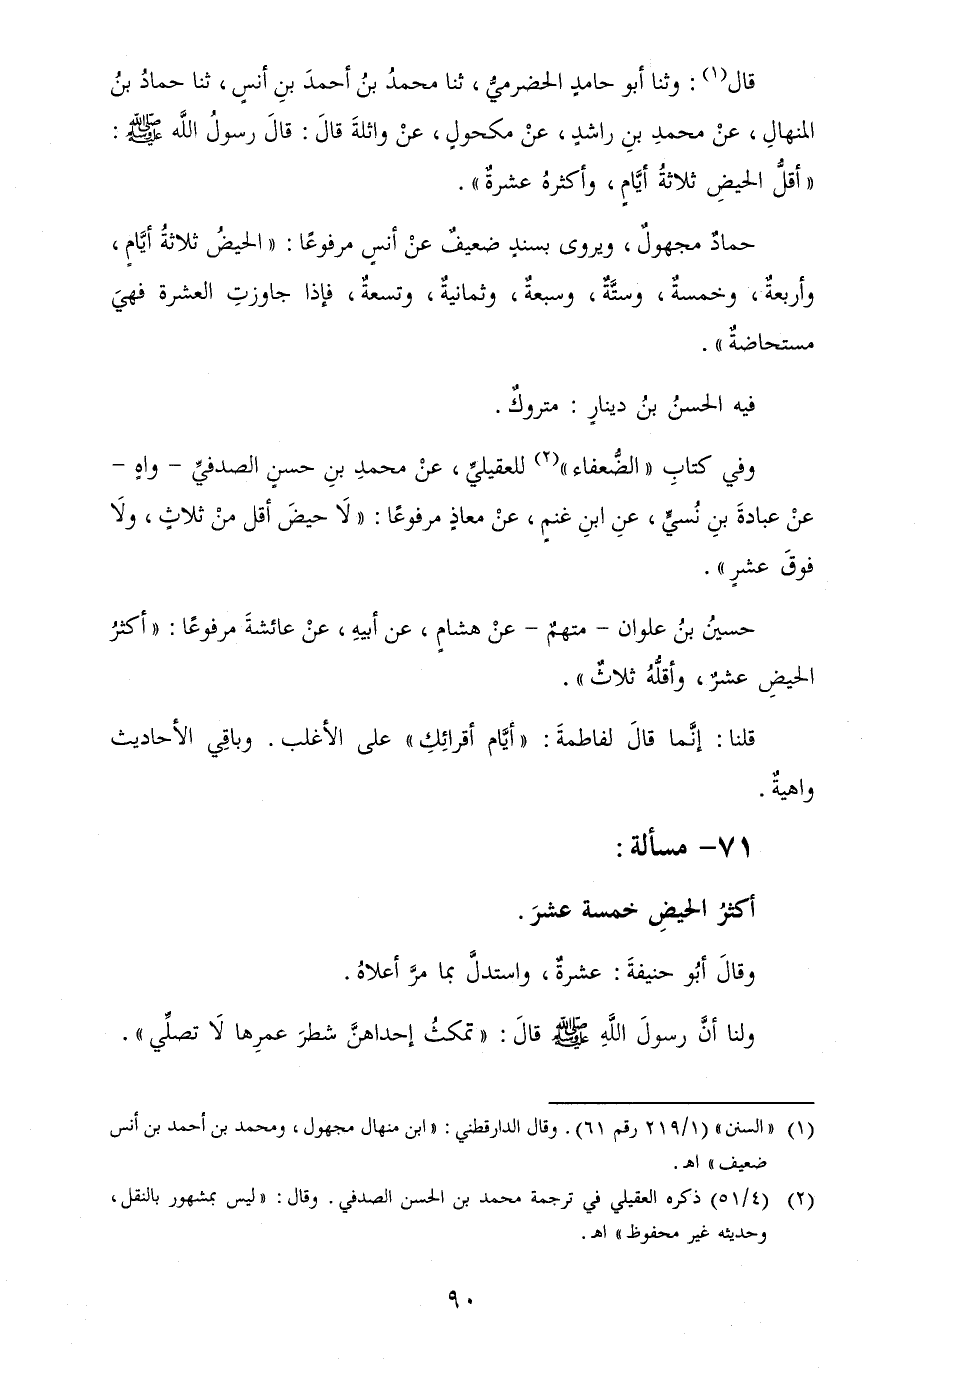 قال(١) : وثنا أبو حامدٍ الحضرميُّ ، ثنا محمدُ بنُ أحمدَ بنِ أنسٍ ، ثنا حمادُ بنُ
المنهالِ ، عنْ محمدِ بنِ راشدٍ ، عنْ مكحولٍ ، عنْ واثلةَ قالَ : قالَ رسولُ اللَّه ﷺ :
« أقلُّ الحيضِ ثلاثةُ أيَّامٍ ، وأكثرهُ عشرةٌ » .
حمادٌ مجهولٌ ، ويروى بسندٍ ضعيفٌ عنْ أنسٍ مرفوعًا : « الحيضُ ثلاثةُ أيَّامٍ ،
وأربعةٌ ، وخمسةٌ ، وستَّةٌ ، وسبعةٌ ، وثمانيةٌ ، وتسعةٌ ، فإذا جاوزتِ العشرة فهيَ
مستحاضةٌ » .
فيه الحسنُ بنُ دينارٍ : متروكٌ .
وفي كتابِ « الضُّعفاء »(٢) للعقيليِّ ، عنْ محمدِ بنِ حسنٍ الصدفيِّ – واهٍ –
عنْ عبادةَ بنِ نُسيٍّ ، عنِ ابنِ غنمٍ ، عنْ معاذٍ مرفوعًا : « لَا حيضَ أقل منْ ثلاثٍ ، ولَا
فوقَ عشرٍ » .
حسينُ بنُ علوان – متهمٌ – عنْ هشامٍ ، عن أبيهِ ، عنْ عائشةَ مرفوعًا : « أكثرُ
الحيضِ عشرٌ ، وأقلُّهُ ثلاثٌ » .
قلنا : إنَّما قالَ لفاطمةَ : « أيَّام أقرائِكِ » على الأغلب . وباقِي الأحاديث
واهيةٌ .
٧١– مسألة :
أكثرُ الحيضِ خمسة عشرَ .
وقالَ أبُو حنيفةَ : عشرةٌ ، واستدلَّ بما مرَّ أعلاهُ .
ولنا أنَّ رسولَ اللَّهِ ﷺ قالَ : « تمكثُ إحداهنَّ شطرَ عمرِها لَا تصلِّي » .
(١) « السنن » (٢١٩/١ رقم ٦١) . وقال الدارقطني : « ابن منهال مجهول ، ومحمد بن أحمد بن أنس
ضعيف » اهـ .
(٢) (٥١/٤) ذكره العقيلي في ترجمة محمد بن الحسن الصدفي . وقال : « ليس بمشهور بالنقل ،
وحديثه غير محفوظ » اهـ .
٩٠